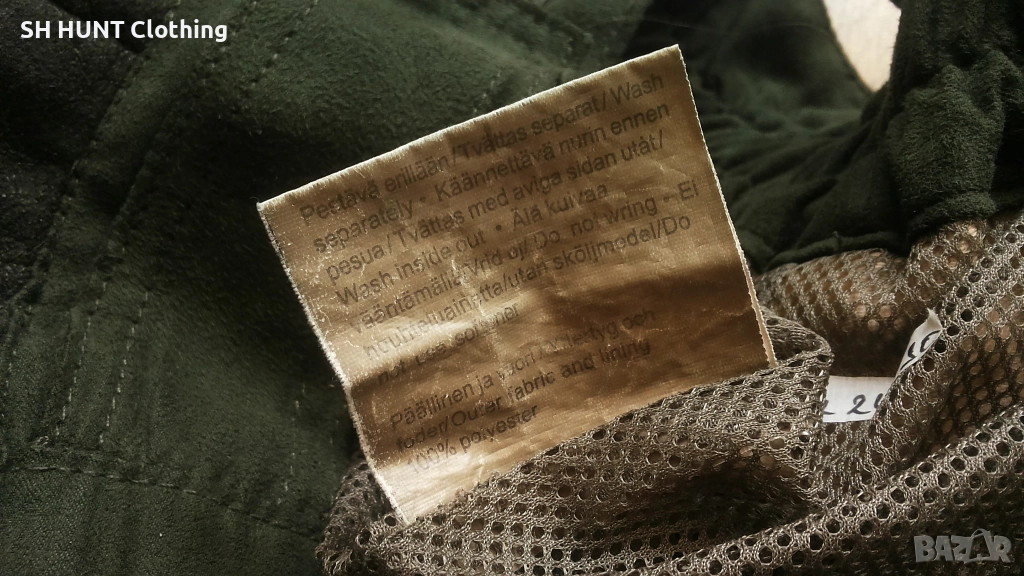 SH HUNT Clothing
Pestävä erillään/Tvättas separat/Wash
separately • Käännettävä nurin ennen
pesua/Tvättas med aviga sidan utåt/
Wash inside out • Älä kuivaa
vääntämällä/Vrid ej/Do not wring • Ei
huuhteluainetta/utan sköljmedel/Do
not use softener
Päällinen ja vuori/Yttertyg och
foder/Outer fabric and lining
100% polyester
24
BAZAR